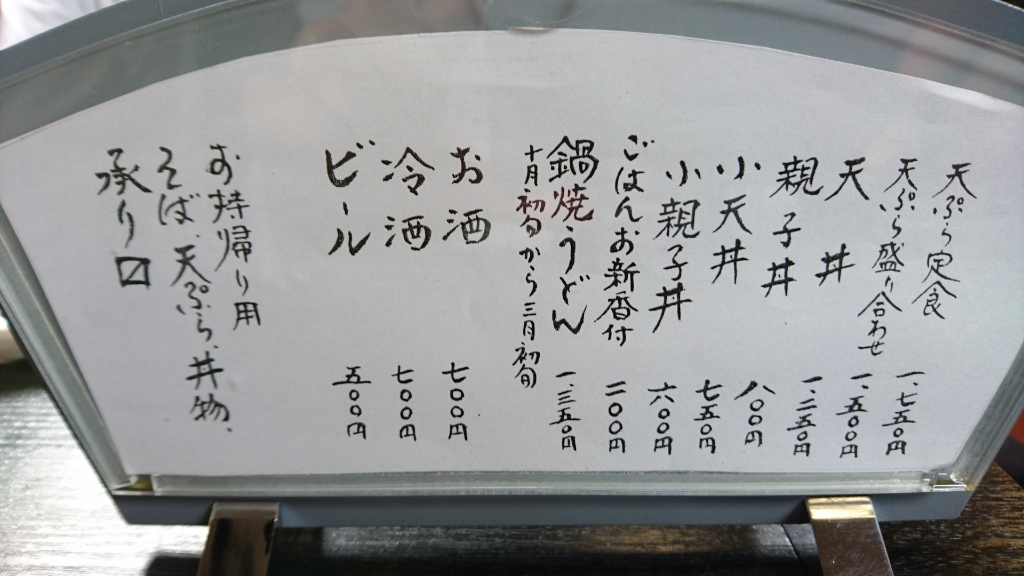 天ぷら定食 一、七五〇円
天ぷら盛り合わせ 一、五〇〇円
天丼 一、二五〇円
親子丼 八〇〇円
小天丼 七五〇円
小親子丼 六〇〇円
ごはんお新香付 二〇〇円
鍋焼うどん 一、三五〇円
十月初旬から三月初旬
お酒 七〇〇円
冷酒 七〇〇円
ビール 五〇〇円
お持帰り用
そば、天ぷら、丼物、
承り〼